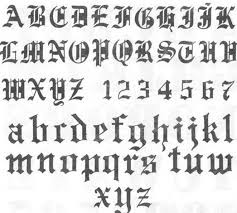 ABCDEFGHIJK
LMNOPQRSTUV
WXYZ 1234567
abcdefghijkl
mnopqrstuw
xyz